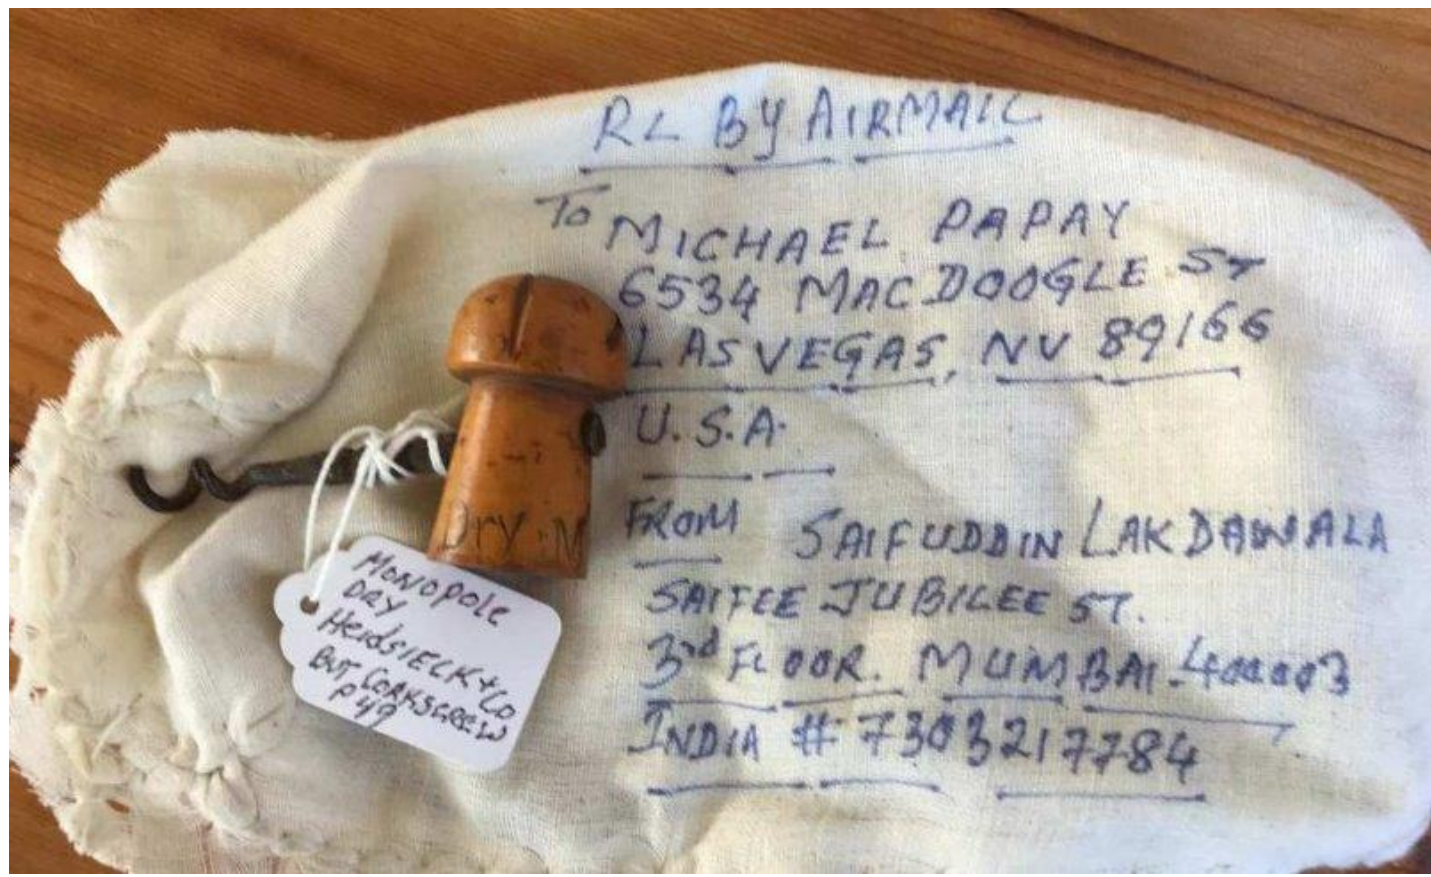 RL BY AIRMAIL
To MICHAEL PAPAY
6534 MACDOOGLE ST
LAS VEGAS, NV 89166
U.S.A.
FROM SAIFUDDIN LAKDAWALA
SAIFEE JUBILEE ST.
3rd FLOOR. MUMBAI-400003
INDIA # 7303217784
Dry · M
MONOPOLE
DRY
HEIDSIECK + CO
BUT CORKSCREW
P 49